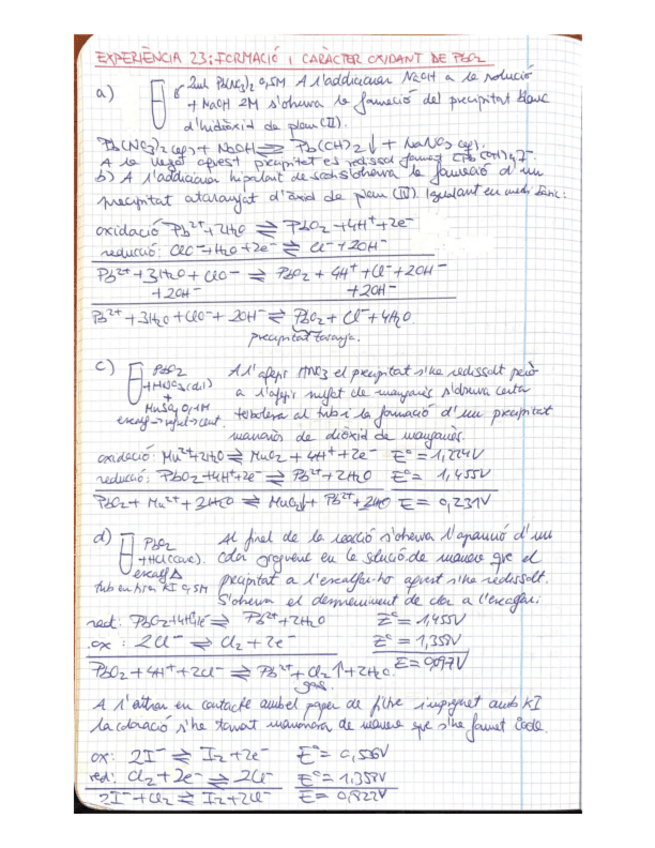 EXPERIÈNCIA 23: FORMACIÓ I CARÀCTER OXIDANT DE PbO2
a) 2mL Pb(NO3)2 0,5M A l'addicionar NaOH a la solució
+ NaOH 2M s'observa la formació del precipitat blanc
d'hidròxid de plom (II).
Pb(NO3)2 (aq) + NaOH ⇌ Pb(OH)2 ↓ + NaNO3 (aq).
A la vegada aquest precipitat es redissol formant
b) A l'addicionar hipoclorit de sodi s'observa la formació d'un
precipitat ataronjat d'òxid de plom (IV). Igualant en medi bàsic:
oxidació Pb2+ + 2H2O ⇌ PbO2 + 4H+ + 2e-
reducció: ClO- + H2O + 2e- ⇌ Cl- + 2OH-
Pb2+ + 3H2O + ClO- ⇌ PbO2 + 4H+ + Cl- + 2OH-
+2OH- +2OH-
Pb2+ + 3H2O + ClO- + 2OH- ⇌ PbO2 + Cl- + 4H2O
precipitat taronja.
c) PbO2 A l'afegir HNO3 el precipitat s'ha redissolt però
+ HNO3 (dil) a l'afegir sulfat de manganès s'observa certa
+
MnSO4 0,1M terbolesa al tub i la formació d'un precipitat
marronós de diòxid de manganès.
oxidació: Mn2+ + 2H2O ⇌ MnO2 + 4H+ + 2e- E° = 1,224V
reducció: PbO2 + 4H+ + 2e- ⇌ Pb2+ + 2H2O E° = 1,455V
PbO2 + Mn2+ + 2H2O ⇌ MnO2↓ + Pb2+ + 2H2O E = 0,231V
d) PbO2 Al final de la reacció s'observa l'aparició d'un
+ HCl (conc). color groguenc en la solució de manera que el
escalf Δ precipitat a l'escalfar-ho aquest s'ha redissolt.
KI 0,5M S'observa el despreniment de clor a l'escalfar.
red: PbO2 + 4H+ + 2e- ⇌ Pb2+ + 2H2O E° = 1,455V
ox: 2Cl- ⇌ Cl2 + 2e- E° = 1,358V
PbO2 + 4H+ + 2Cl- ⇌ Pb2+ + Cl2↑ + 2H2O. E = 0,097V
gas.
A l'entrar en contacte amb el paper de filtre impregnat amb KI
la coloració s'ha tornat marronosa de manera que s'ha format iode.
ox: 2I- ⇌ I2 + 2e- E° = 0,536V
red: Cl2 + 2e- ⇌ 2Cl- E° = 1,358V
2I- + Cl2 ⇌ I2 + 2Cl- E = 0,822V